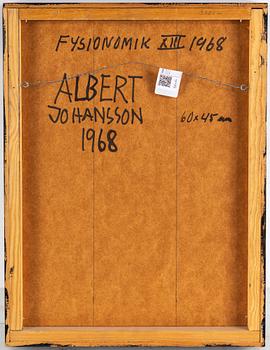 FYSIONOMIK XIII 1968
ALBERT
JOHANSSON
1968
60x45 cm